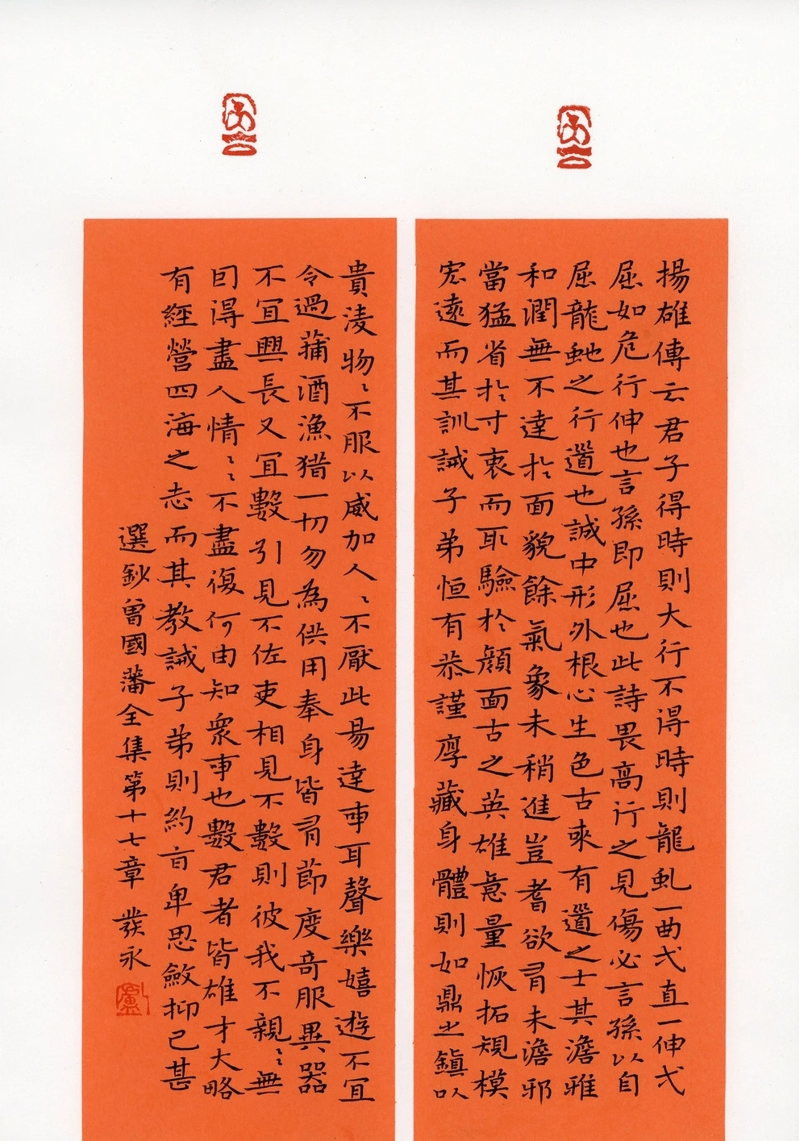 揚雄傳云君子得時則大行不得時則龍虬一曲弌直一伸弌
屈如危行伸也言孫即屈也此詩畏高行之見傷必言孫以自
屈龍虵之行道也誠中形外根心生色古來有道之士其澹雅
和潤無不達扵面貌餘氣象未稍進豈耆欲有未澹邪
當猛省扵寸衷而取驗於顏面古之英雄意量恢拓規模
宏遠而其訓誡子弟恒有恭謹厚藏身體則如鼎之鎮以
貴淩物〻不服以威加人〻不厭此易達事耳聲樂嬉遊不宜
令過蒱酒漁猎一切勿為供用奉身皆有節度奇服異器
不宜興長又宜數引見不佐吏相見不數則彼我不親〻無
因得盡人情〻不盡復何由知衆事也數君者皆雄才大略
有經營四海之志而其教誡子弟則約旨卑思斂抑已甚
選鈔曾國藩全集第十七章 發永